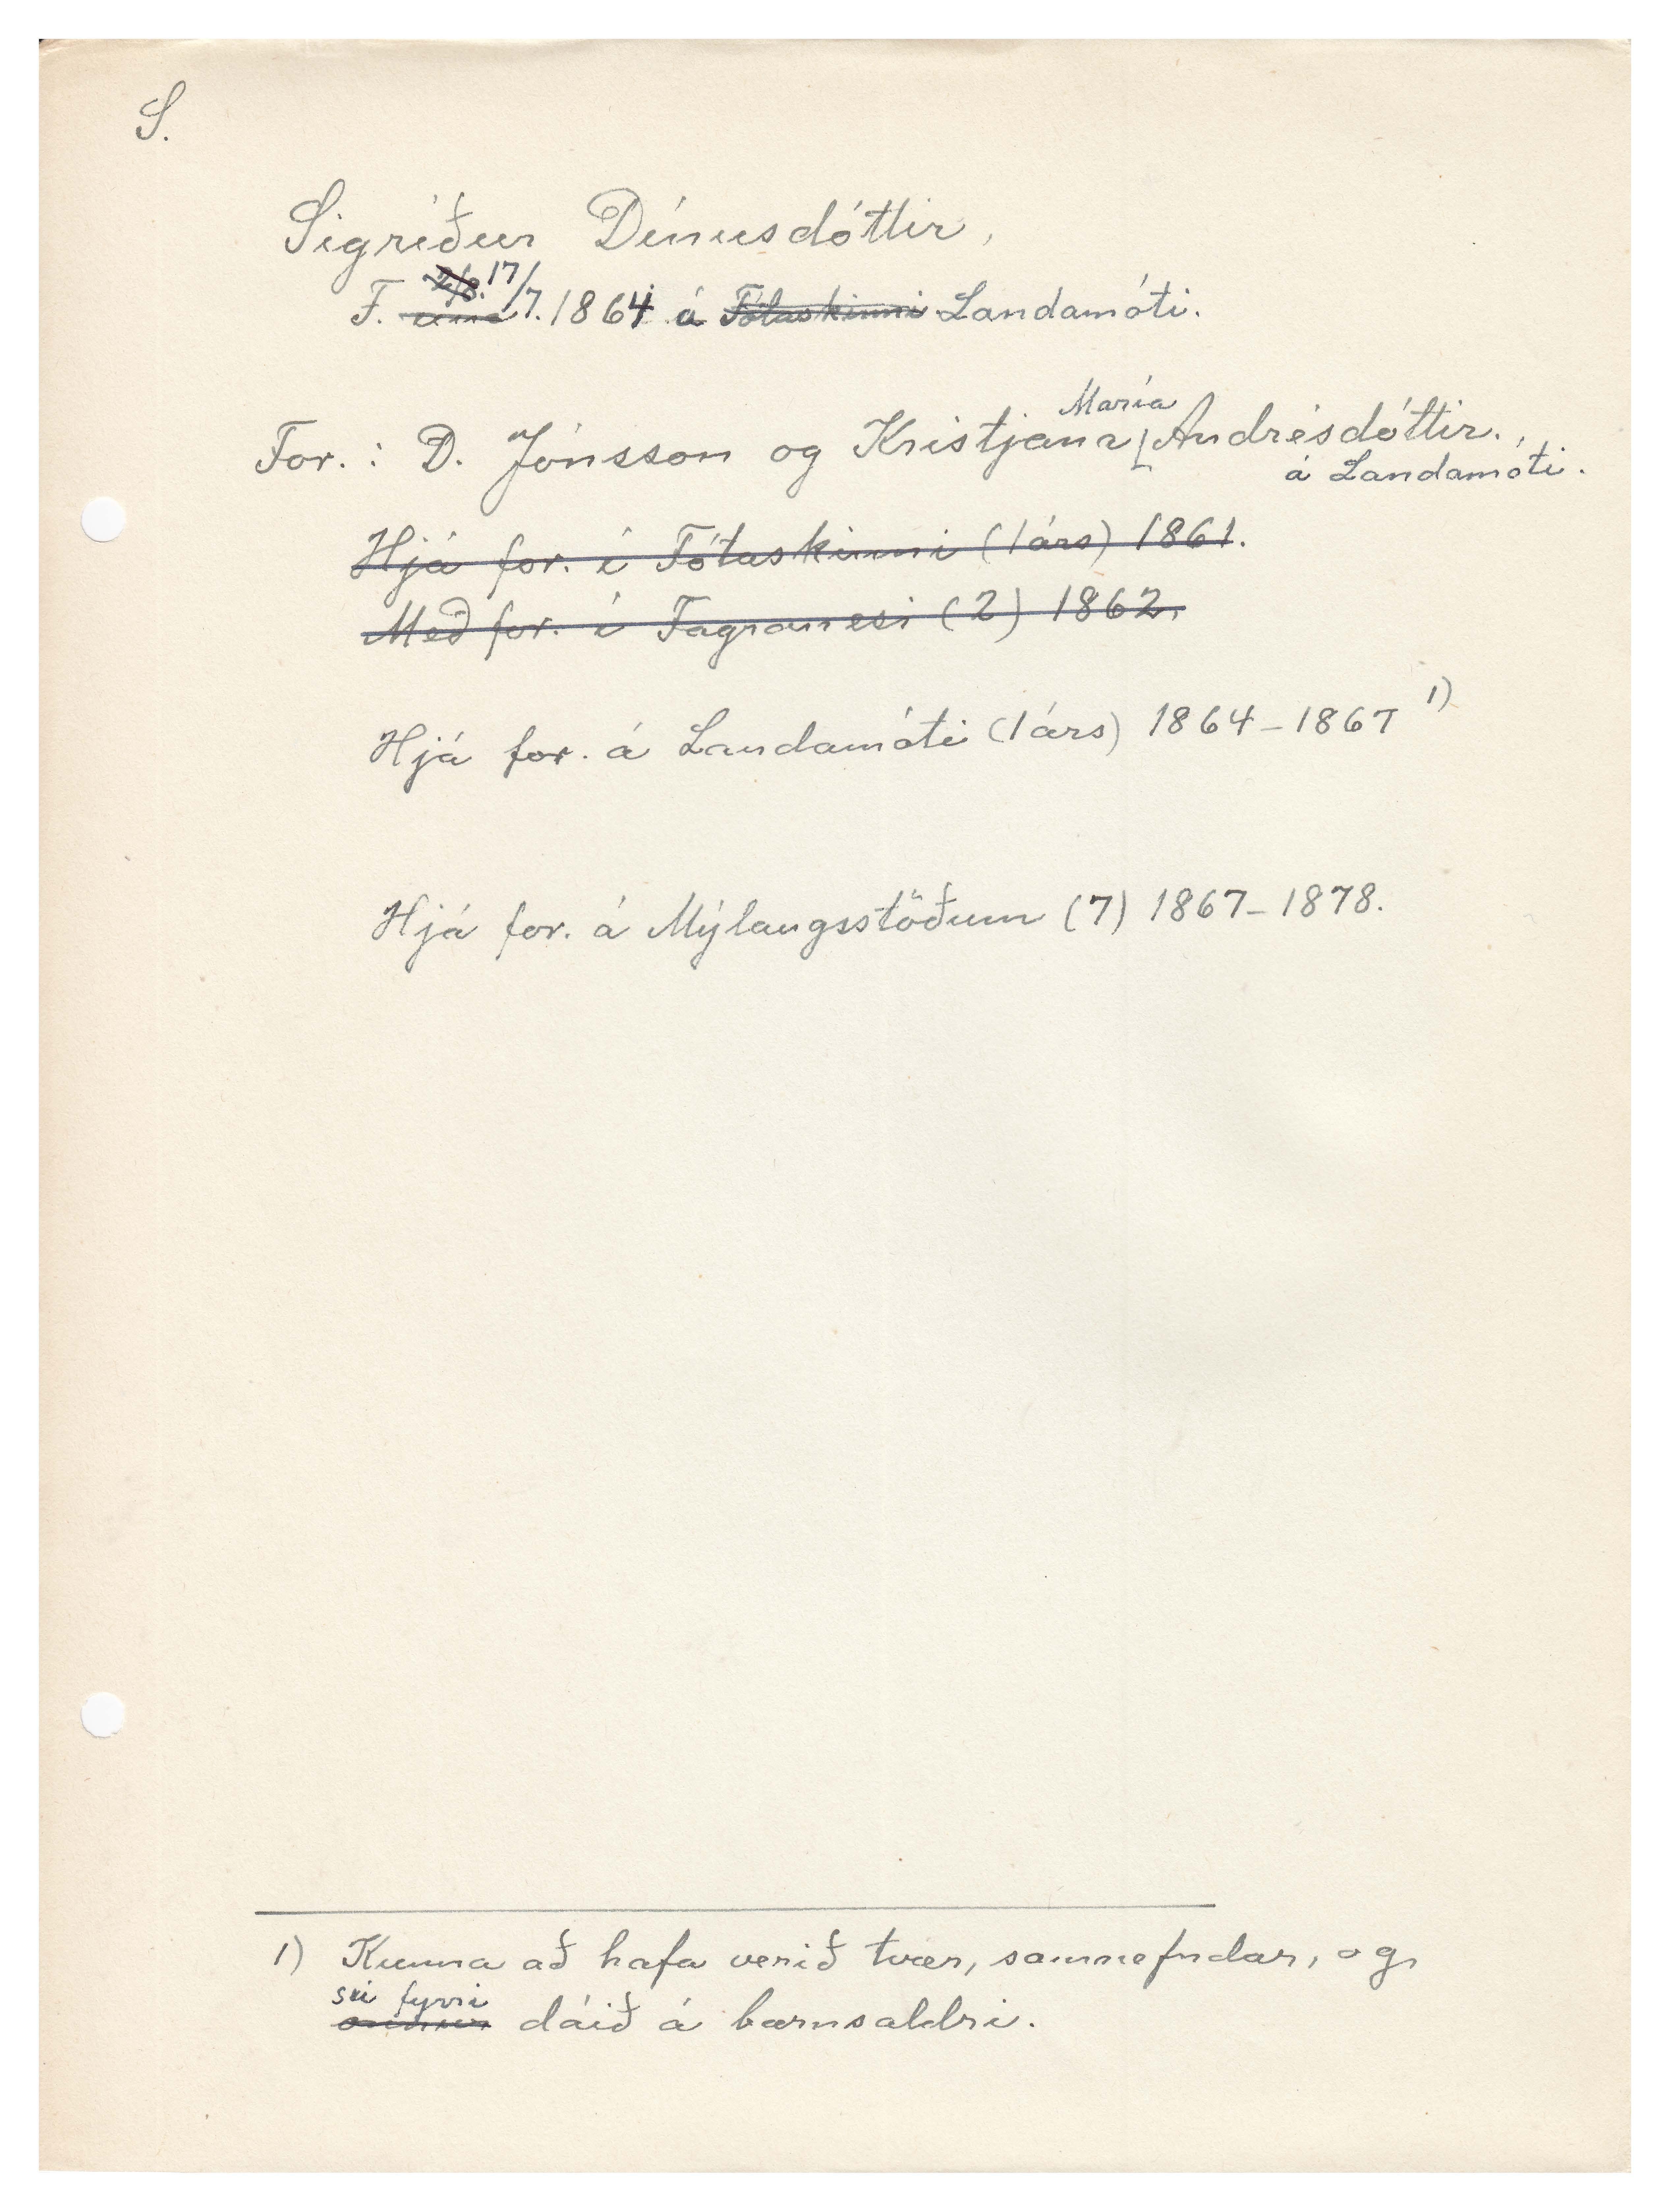 S.
Sigríður Dínusdóttir,
F. 2/8. 17/7. 1864 á Fótaskinni Landamóti.
María
For.: D. Jónsson og Kristjana Andrésdóttir.,
á Landamóti.
Hjá for. í Fótaskinni (1 árs) 1861.
Með for. í Fagranesi (2) 1862.
Hjá for. á Landamóti (1 árs) 1864-1867 1)
Hjá for. á Mýlaugsstöðum (7) 1867-1878.
1) Kunna að hafa verið tvær, samnefndar, og
sú fyrri
dáið á barnsaldri.